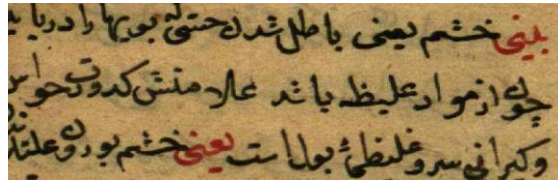 بینی خشم یعنی باطل شدن حس بویها را دریابد
چون از مواد غلیظه باشد علامتش کدورت حواس
وکرانی سر و غلیظی بول است یعنی خشم بودن